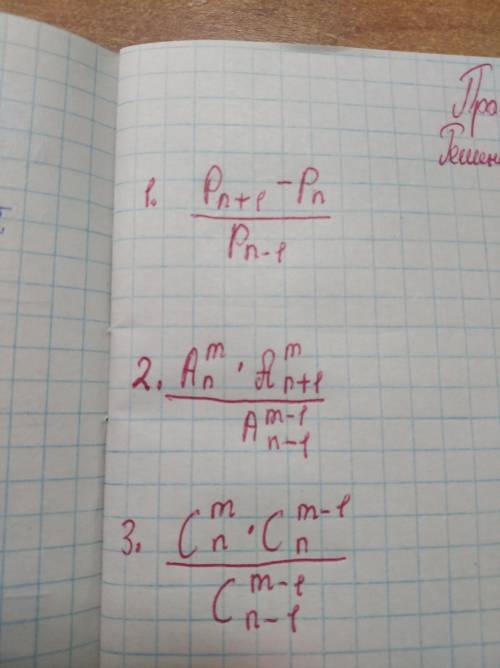 Пра
Решен
1. (P_{n+1} - P_n) / P_{n-1}
2. (A_n^m · A_{n+1}^m) / A_{n-1}^{m-1}
3. (C_n^m · C_n^{m-1}) / C_{n-1}^{m-1}